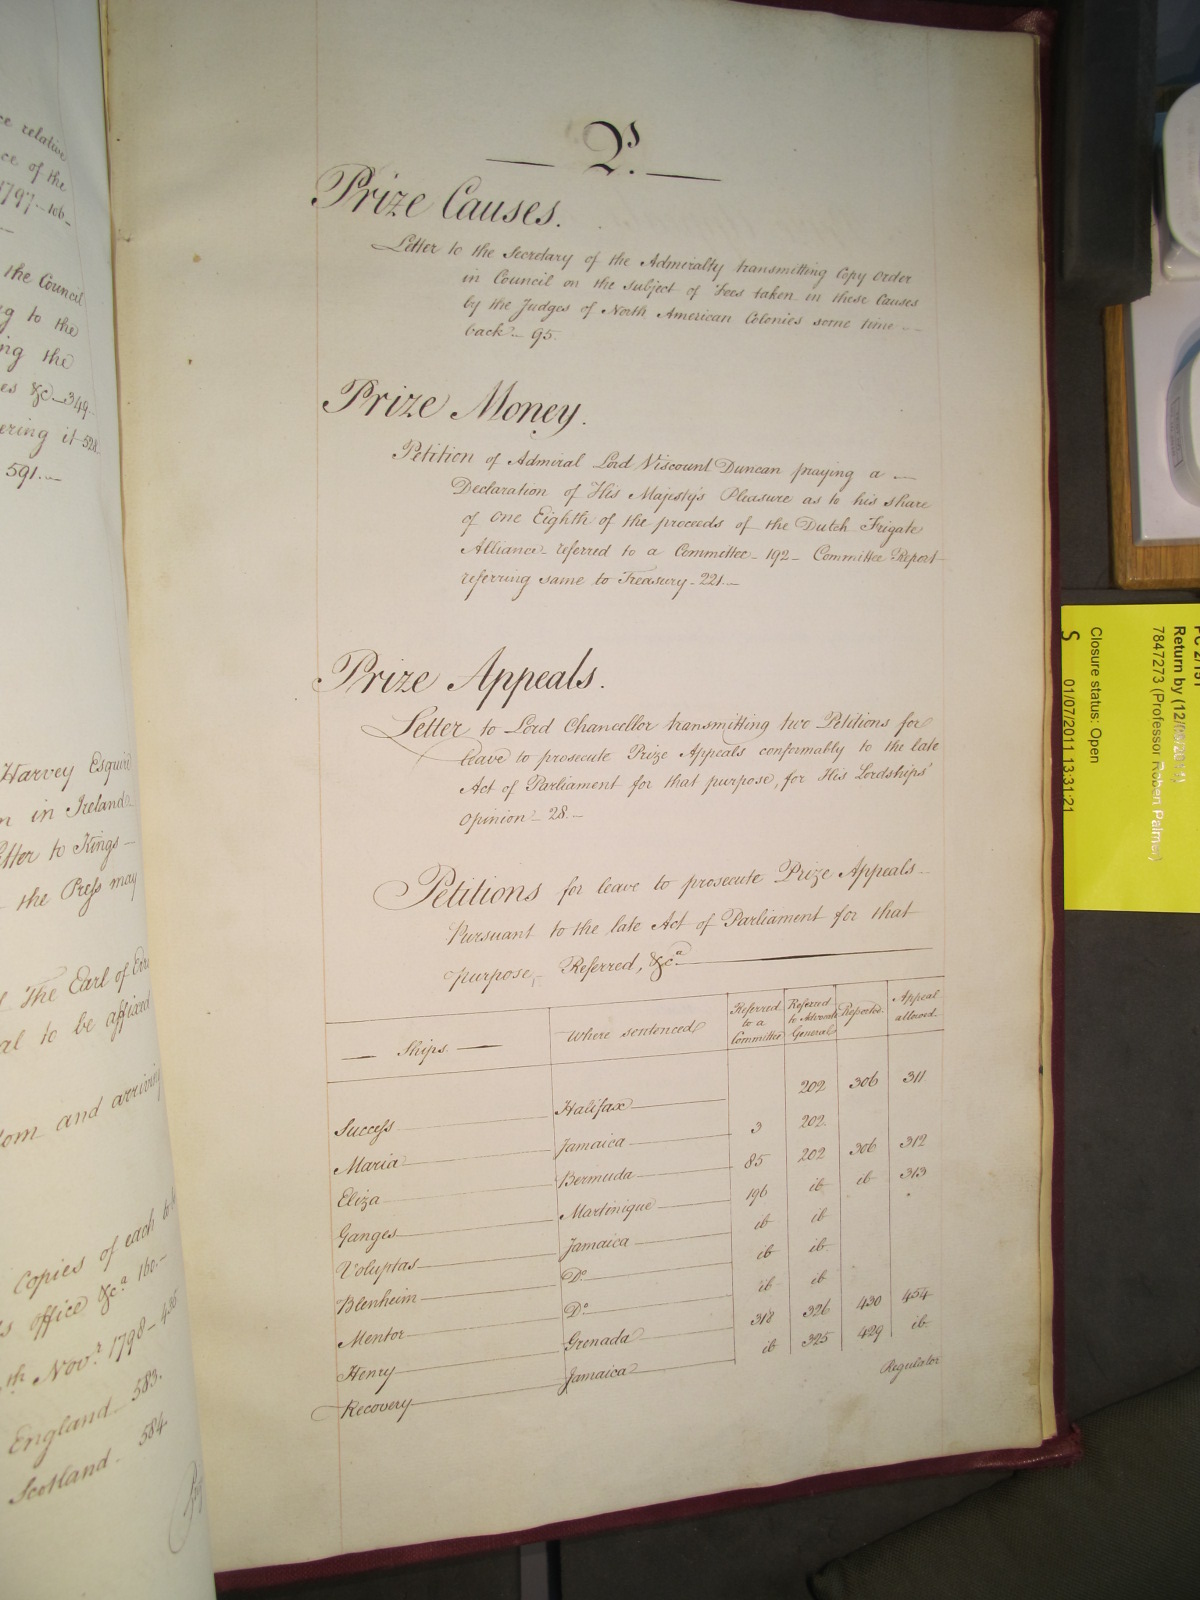 ce relative
ce of the
1797 — 106 —
the Council
g to the
ng the
es &c — 349
ering it — 528
591. —
Harvey Esquire
n in Ireland
Letter to Kings —
the Press may
The Earl of
al to be affixed
dom and arriving
Copies of each to
s office &ca. 160. —
th. Novr. 1798 —
England — 583.
Scotland. 584
— P. —
Prize Causes.
Letter to the Secretary of the Admiralty transmitting Copy Order
in Council on the subject of Fees taken in these Causes
by the Judges of North American Colonies some time —
back — 95.
Prize Money.
Petition of Admiral Lord Viscount Duncan praying a —
Declaration of His Majesty's Pleasure as to his share
of one Eighth of the proceeds of the Dutch Frigate
Alliance — referred to a Committee — 192 — Committee Report
referring same to Treasury — 221. —
Prize Appeals.
Letter to Lord Chancellor transmitting two Petitions for
leave to prosecute Prize Appeals conformably to the late
Act of Parliament for that purpose, for His Lordships'
Opinion — 28. —
Petitions for leave to prosecute Prize Appeals —
Pursuant to the late Act of Parliament for that
purpose, — Referred, &ca. —
— Ships. — Where sentenced Referred to a Committee Referred to Advocate General Reported. Appeal allowed.
Success Halifax 202 306 311
Maria Jamaica 3 202.
Eliza Bermuda 85 202 306 312
Ganges Martinique 196 ib ib 313
Voluptas Jamaica ib ib
Blenheim Do. ib ib.
Mentor Do. ib ib
Henry Grenada 318 326 430 454
Recovery Jamaica ib 325 429 ib.
Regulator
PC 2/151
Return by (12/
7847273 (Professor Robert Palmer)
Closure status: Open
S 01/07/2011 13:31:21